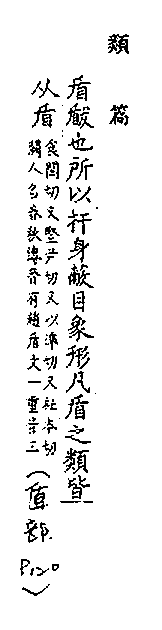 類篇
盾瞂也所以扞身蔽目象形凡盾之類皆
从盾
食閏切又豎尹切又以準切又杜本切
人名春秋傳晉有趙盾文一重音三
（盾部 P120）